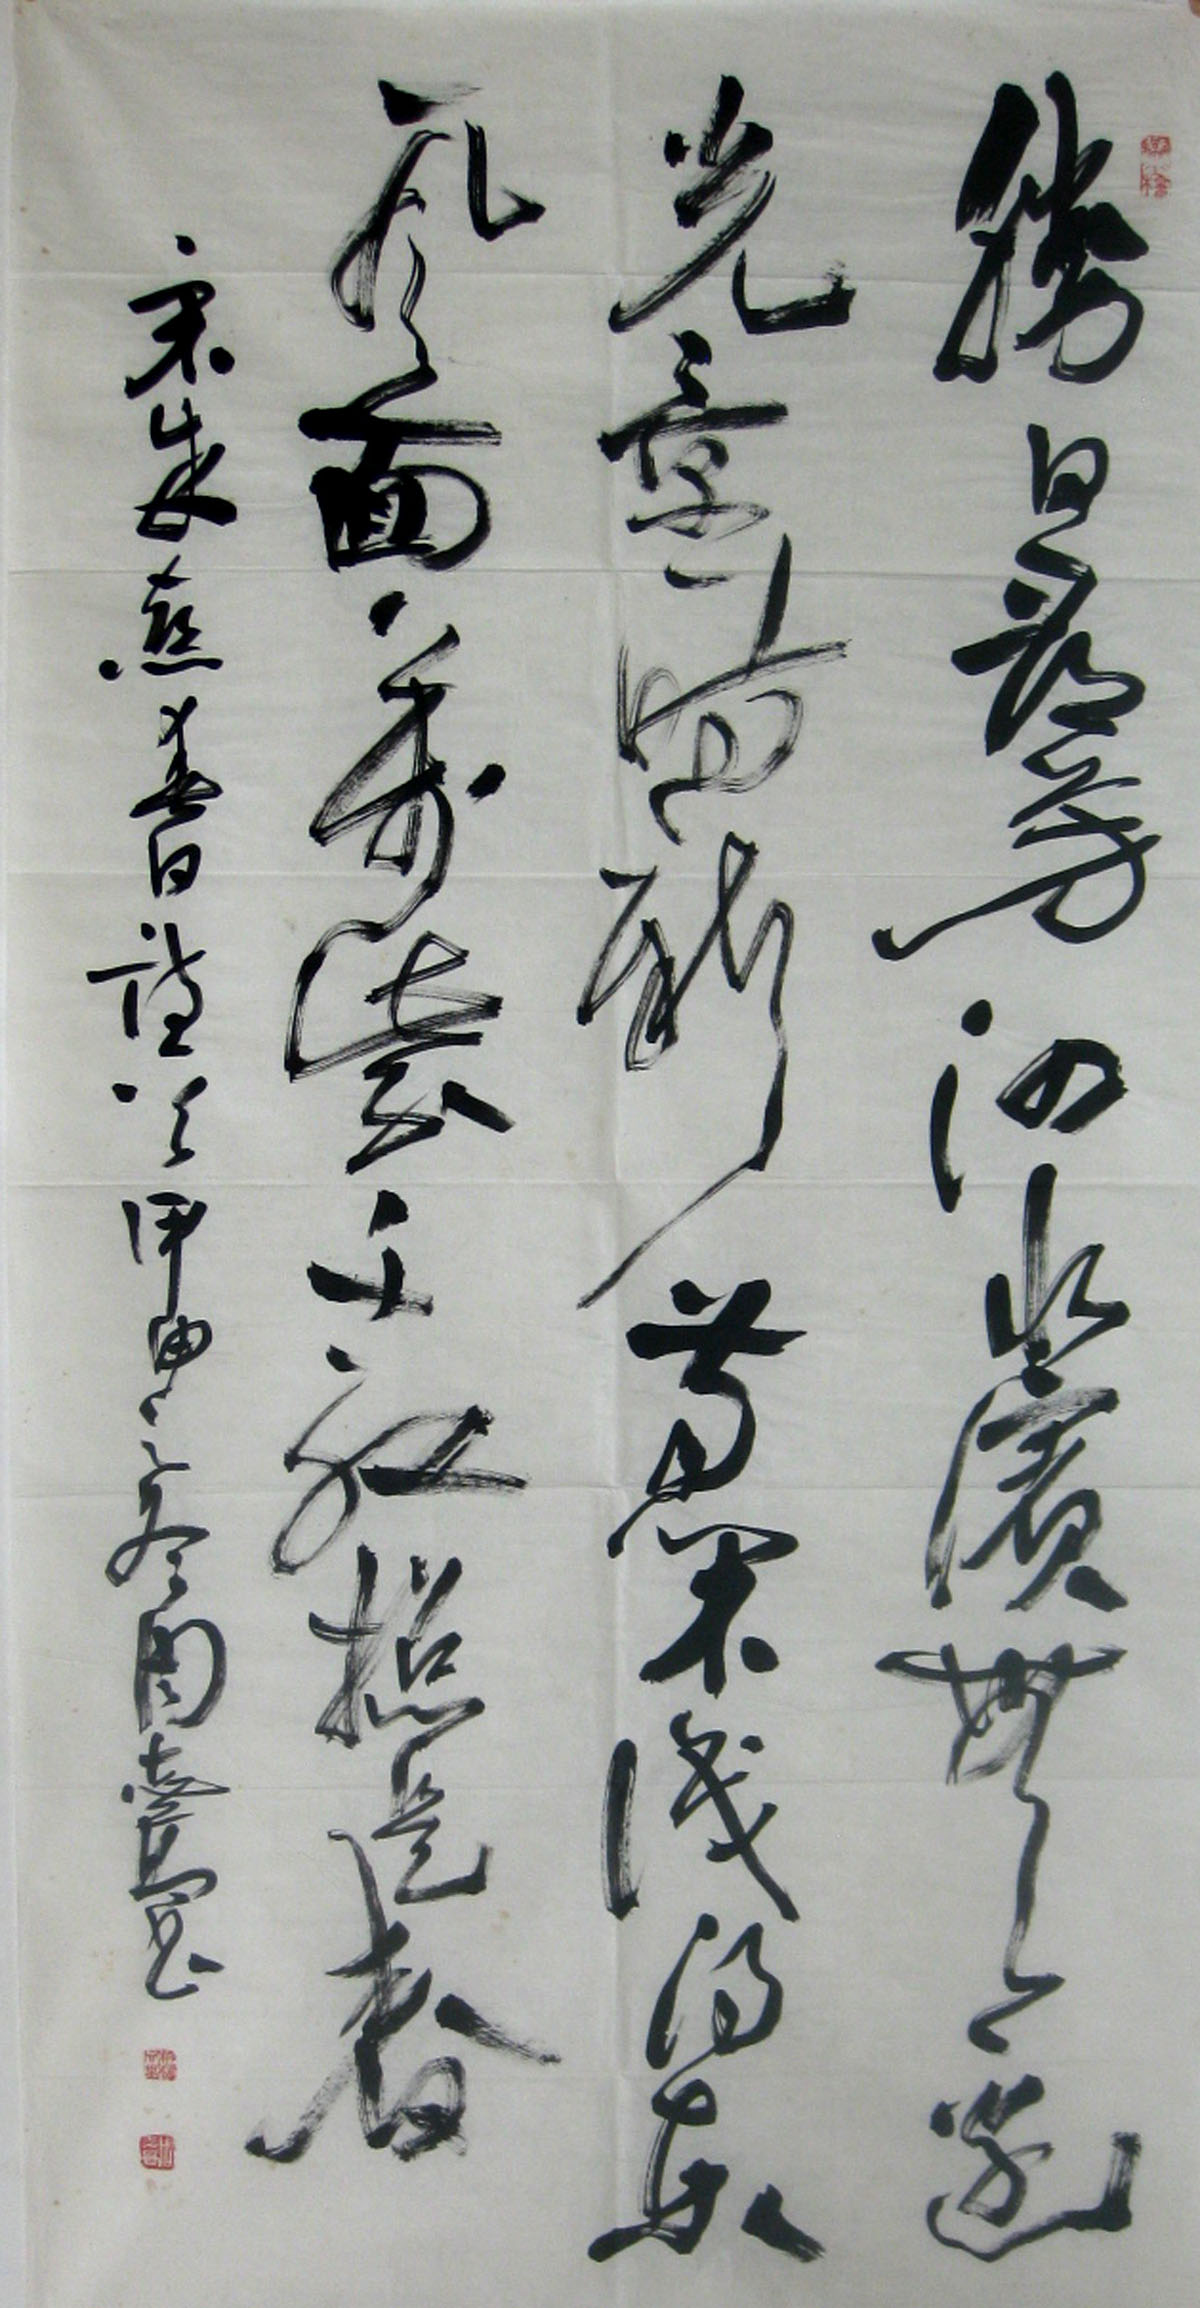 勝日尋芳泗水濱無邊
光景一時新等閑識得東
風面萬紫千紅總是春
宋朱熹春日詩以甲申之冬周書